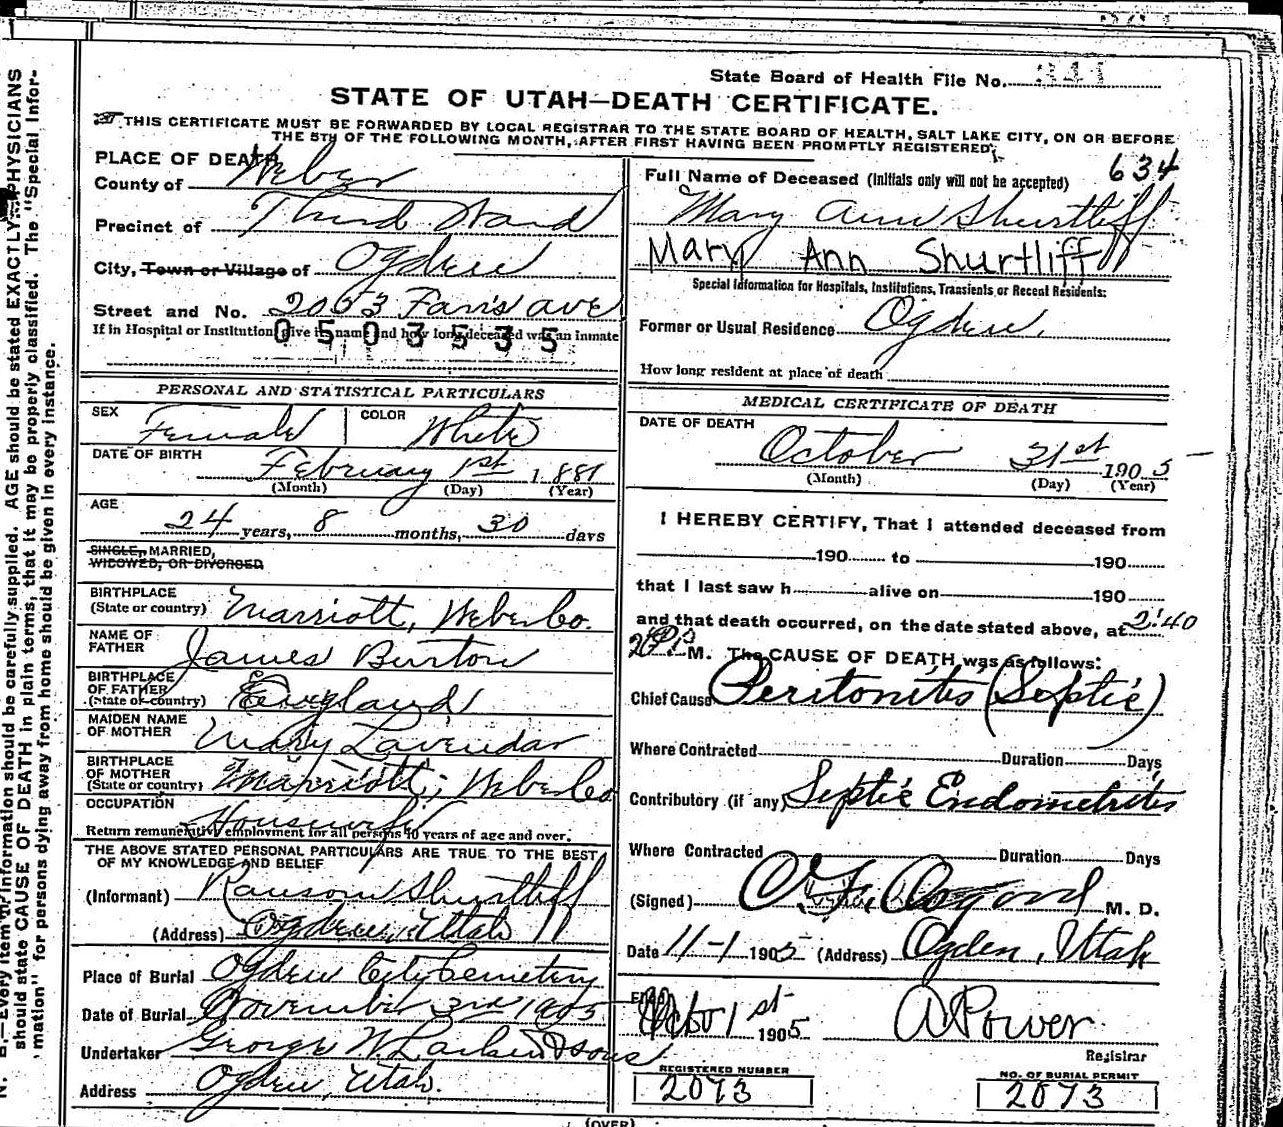 State Board of Health File No. 341
STATE OF UTAH—DEATH CERTIFICATE.
THIS CERTIFICATE MUST BE FORWARDED BY LOCAL REGISTRAR TO THE STATE BOARD OF HEALTH, SALT LAKE CITY, ON OR BEFORE
THE 5TH OF THE FOLLOWING MONTH, AFTER FIRST HAVING BEEN PROMPTLY REGISTERED.
PLACE OF DEATH
County of Weber
Precinct of Third Ward
City, Town or Village of Ogden
Street and No. 2053 Farr's ave
If in Hospital or Institution give its name and how long deceased was an inmate
0503535
PERSONAL AND STATISTICAL PARTICULARS
SEX Female COLOR White
DATE OF BIRTH February 1st 1881
(Month) (Day) (Year)
AGE
24 years, 8 months, 30 days
SINGLE, MARRIED,
WIDOWED, OR DIVORCED
BIRTHPLACE
(State or country) Marriott, Weber Co.
NAME OF
FATHER James Burton
BIRTHPLACE
OF FATHER
(State or country) England
MAIDEN NAME
OF MOTHER Mary Lavendar
BIRTHPLACE
OF MOTHER
(State or country) Marriott, Weber Co
OCCUPATION Housewife
Return remunerative employment for all persons 10 years of age and over.
THE ABOVE STATED PERSONAL PARTICULARS ARE TRUE TO THE BEST
OF MY KNOWLEDGE AND BELIEF
(Informant) Ransom Shurtliff
(Address) Ogden, Utah
Place of Burial Ogden City Cemetery
Date of Burial November 3rd 1905
Undertaker George W. Larkin & sons
Address Ogden, Utah.
634
Full Name of Deceased (Initials only will not be accepted)
Mary Ann Shurtliff
Mary Ann Shurtliff
Special Information for Hospitals, Institutions, Transients or Recent Residents:
Former or Usual Residence Ogden.
How long resident at place of death
MEDICAL CERTIFICATE OF DEATH
DATE OF DEATH
October 31st 1905
(Month) (Day) (Year)
I HEREBY CERTIFY, That I attended deceased from
190 to 190
that I last saw h alive on 190
and that death occurred, on the date stated above, at 2:40
P. M. The CAUSE OF DEATH was as follows:
Chief Cause Peritonitis (Septic)
Where Contracted Duration Days
Contributory (if any) Septic Endometritis
Where Contracted Duration Days
(Signed) M. D.
Date 11-1 1905 (Address) Ogden, Utah
Filed 1st 1905 A Power
Registrar
REGISTERED NUMBER
2073
NO. OF BURIAL PERMIT
2073
(OVER)
N. B.—Every item of information should be carefully supplied. AGE should be stated EXACTLY. PHYSICIANS
should state CAUSE OF DEATH in plain terms, that it may be properly classified. The "Special Infor-
mation" for persons dying away from home should be given in every instance.